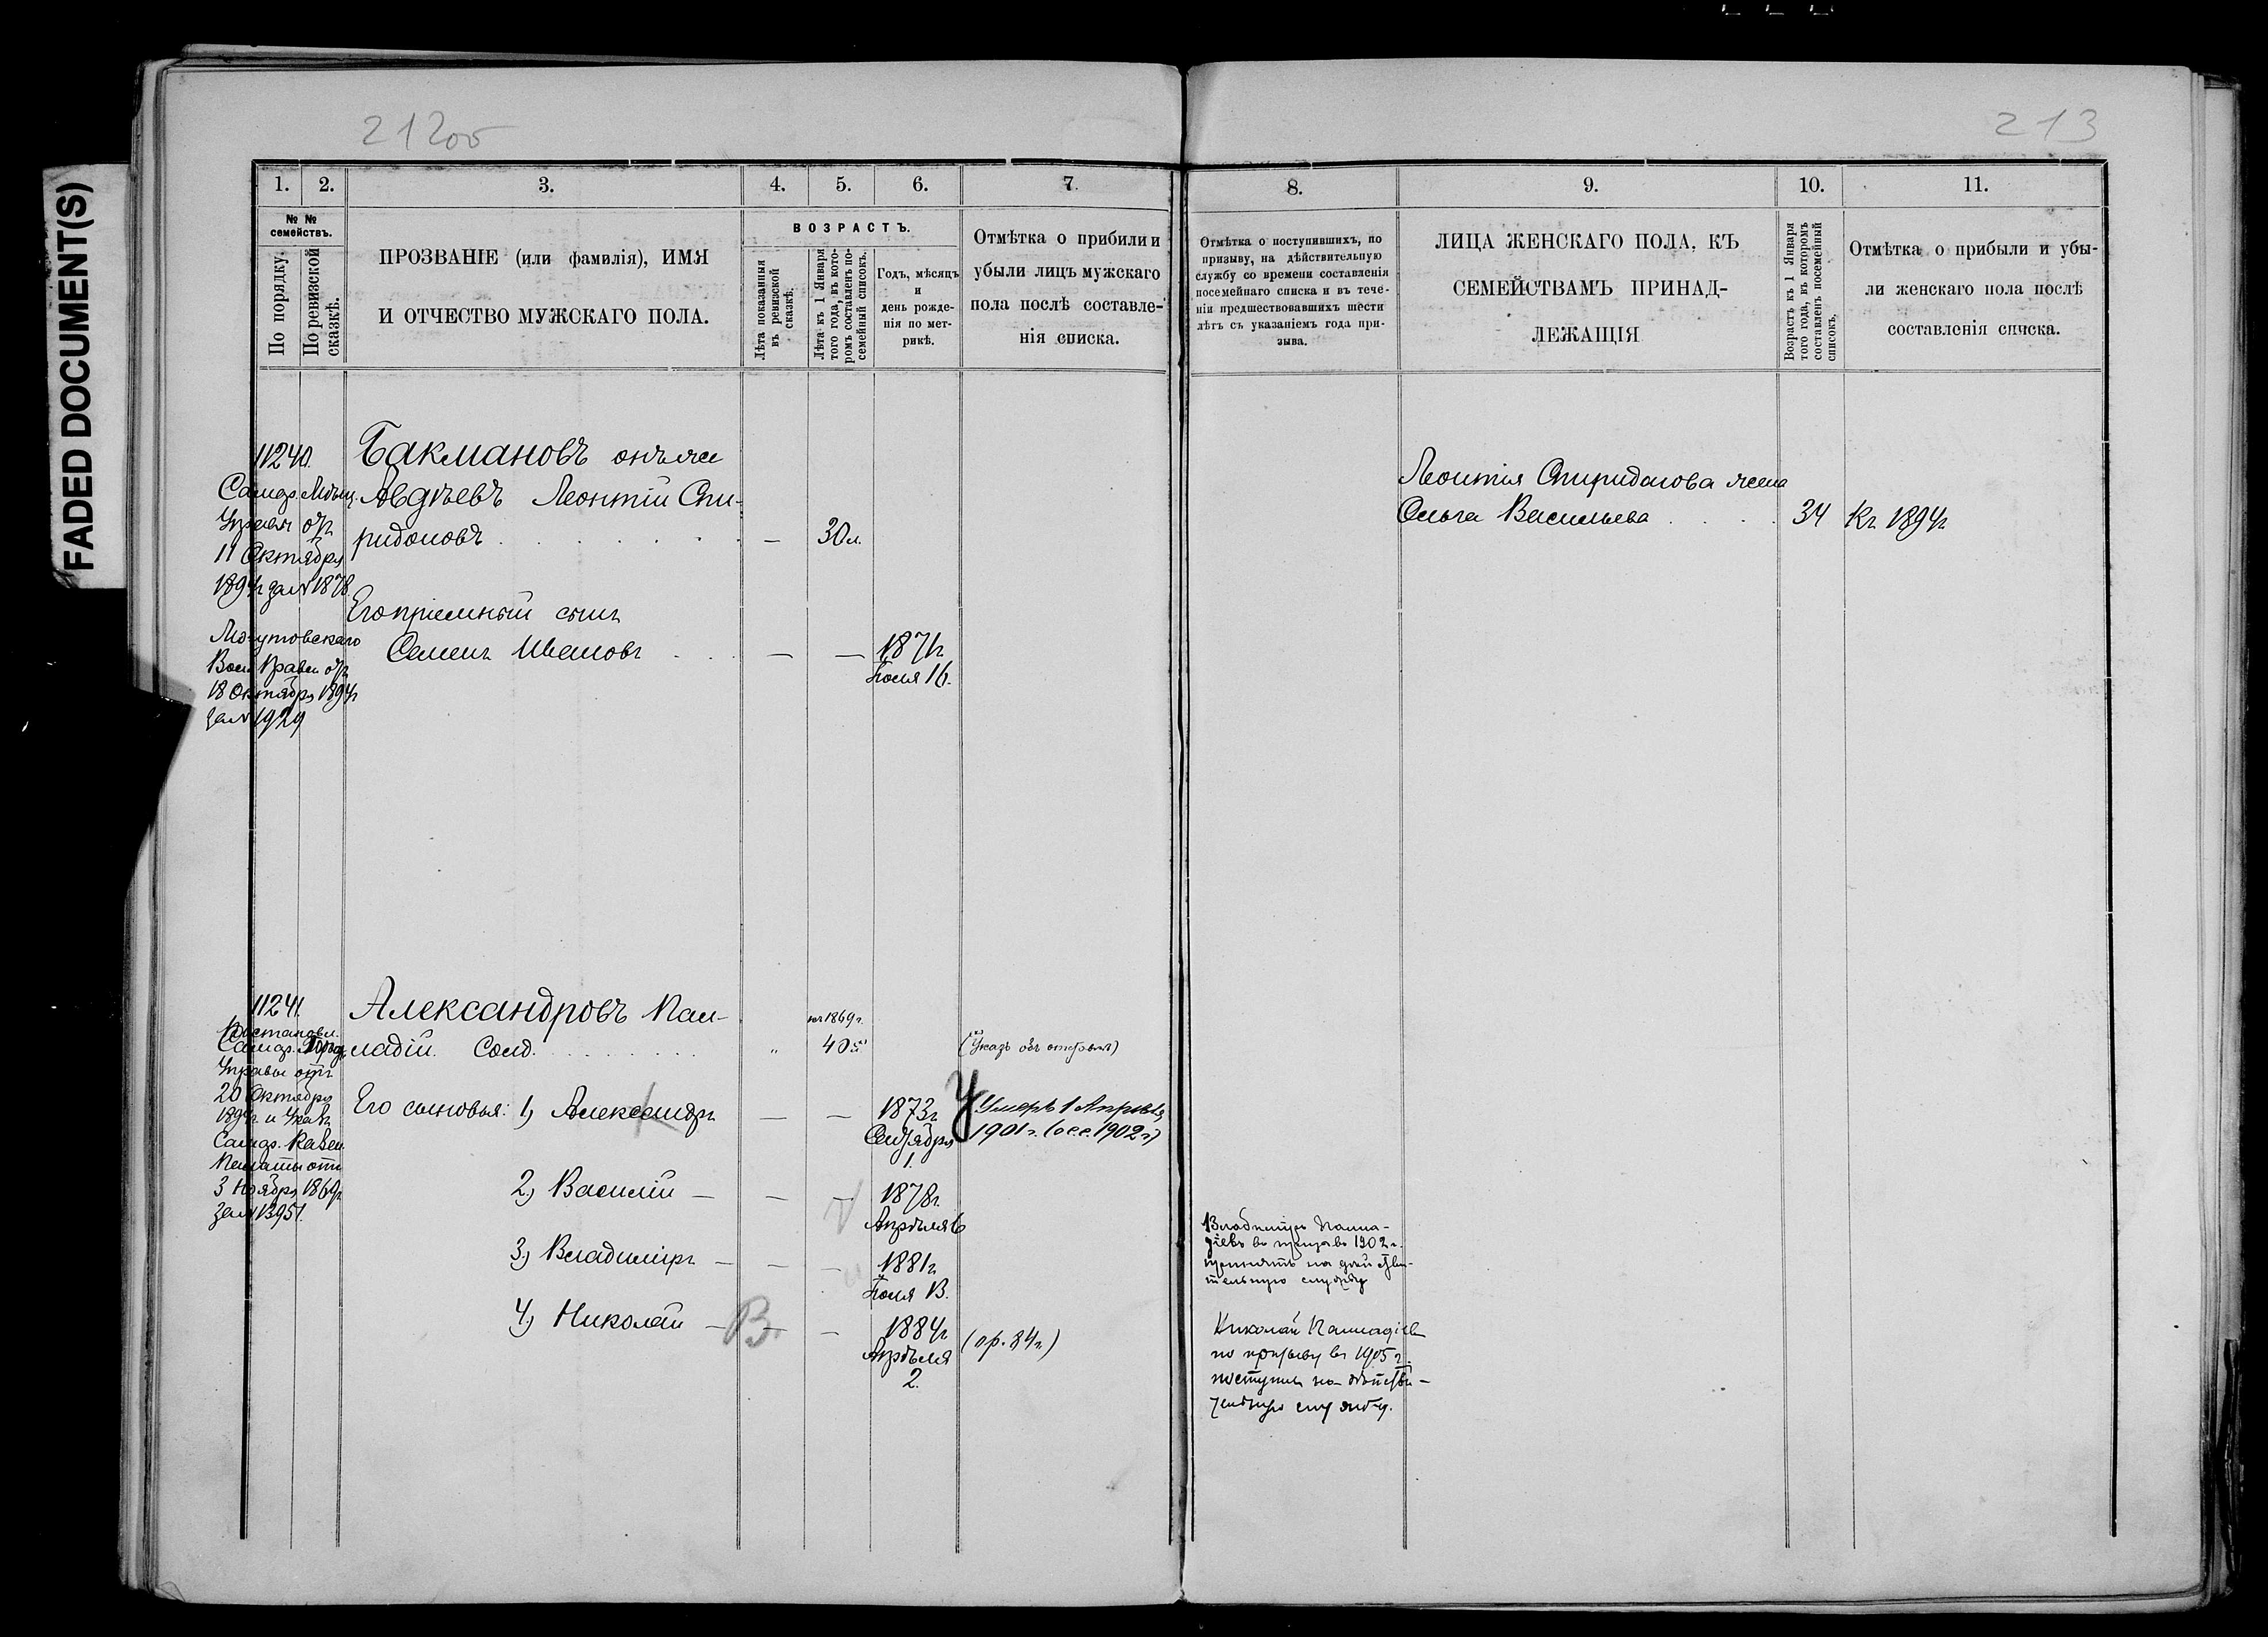 FADED DOCUMENT(S)
212об
213
1.
2.
3.
4.
5.
6.
7.
8.
9.
10.
11.
№ №
семействъ.
По порядку.
По ревизской
сказкѣ.
ПРОЗВАНІЕ (или фамилія), ИМЯ
И ОТЧЕСТВО МУЖСКАГО ПОЛА.
ВОЗРАСТЪ.
Лѣта показанныя
въ ревизской
сказкѣ.
Лѣта къ 1 Января
того года, въ кото-
ромъ составленъ по-
семейный списокъ.
Годъ, мѣсяцъ
и
день рожде-
нія по мет-
рикѣ.
Отмѣтка о прибыли и
убыли лицъ мужскаго
пола послѣ составле-
нія списка.
Отмѣтка о поступившихъ, по
призыву, на дѣйствительную
службу со времени составленія
посемейнаго списка и въ тече-
ніи предшествовавшихъ шести
лѣтъ съ указаніемъ года при-
зыва.
ЛИЦА ЖЕНСКАГО ПОЛА, КЪ
СЕМЕЙСТВАМЪ ПРИНАД-
ЛЕЖАЩІЯ
Возрастъ къ 1 Января
того года, въ которомъ
составленъ посемейный
списокъ.
Отмѣтка о прибыли и убы-
ли женскаго пола послѣ
составленія списка.
11240.
Самар. Мѣщ.
Управы отъ
11 Октября
1894г за № 1878.
Могутовскаго
Вол. Правл. отъ
18 Октября 1894г
за № 1929
Бакмановъ онъ же
Авдѣевъ Леонтій Спи-
ридоновъ
—
30 л.
Его пріемный сынъ
Семенъ Ивановъ
—
—
1871г
Іюля 16.
Леонтія Спиридонова жена
Ольга Васильева
34
Къ 1894г
11241.
Постановл.
Самар. Город.
Управы отъ
20 Октября
1894г. и Указъ
Самар. Казен.
Палаты отъ
3 Ноября 1869г
за № 13951.
Александровъ Пал-
ладій. Солд.
къ 1869г.
40
(Указъ объ отставкѣ)
Его сыновья: 1) Александръ — —
1873г
Сентября
1.
У Умеръ 1 Апрѣля
1901г. (осс. 1902г)
2) Василій — — —
1878г.
Апрѣля 6
3) Владиміръ — — —
1881г
Іюля 13.
Владиміръ Палла-
діевъ въ призывъ 1902г.
принятъ на дѣйстви-
тельную службу
4) Николай — В — —
1884г
Апрѣля
2.
(пр. 84г.)
Николай Палладіевъ
по призыву въ 1905 г.
поступилъ на дѣйстви-
тельную службу.